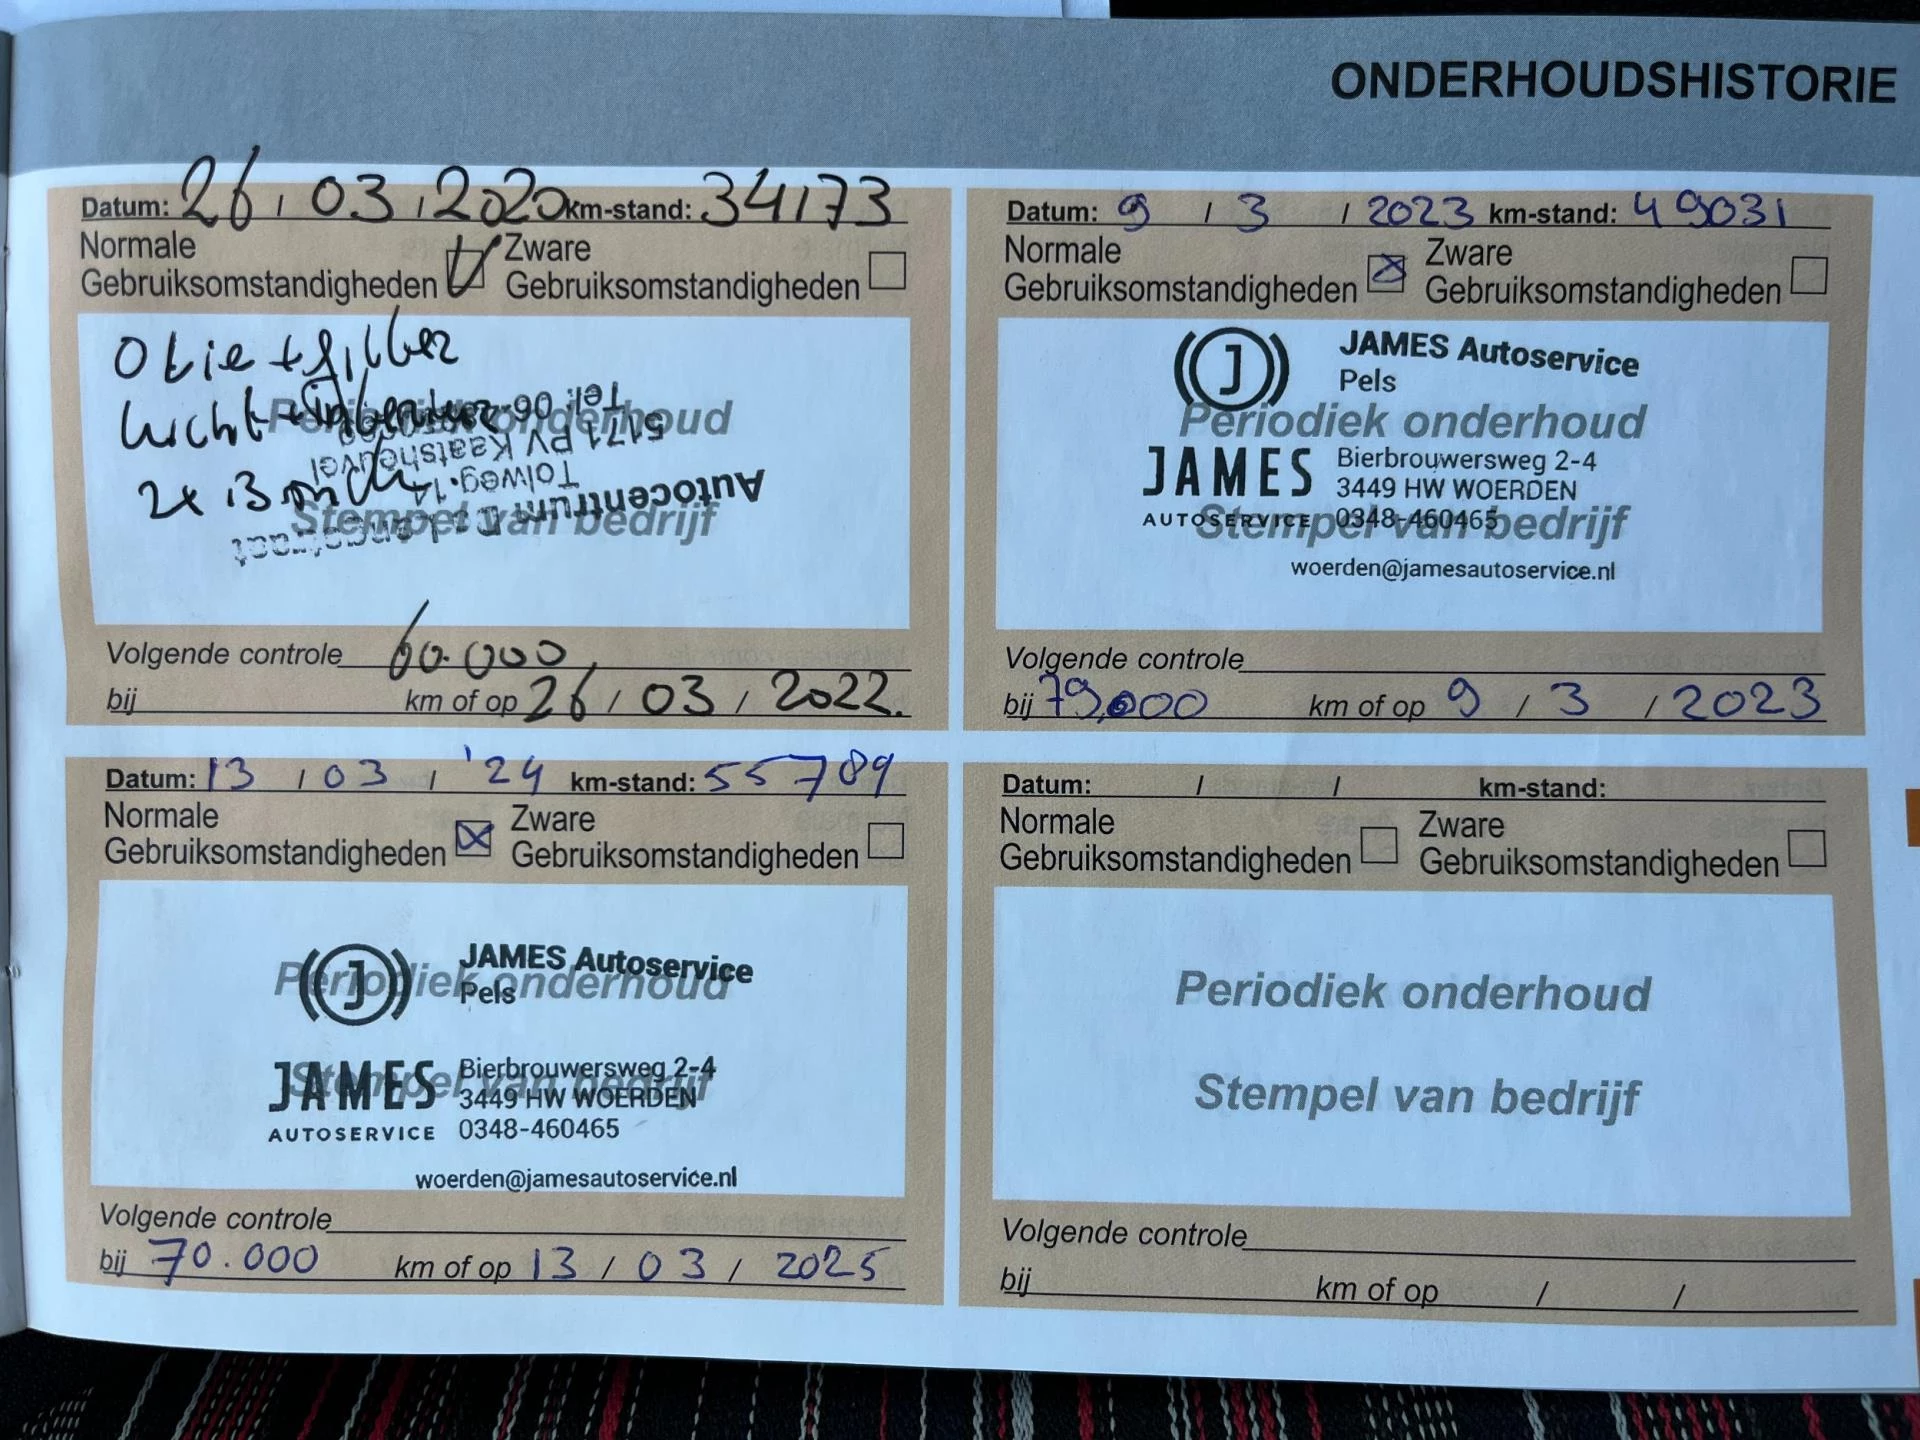 ONDERHOUDSHISTORIE
Datum: 26 / 03 / 2020 km-stand: 34173
Normale Gebruiksomstandigheden Zware Gebruiksomstandigheden
Olie + filter
lucht +
2x
Periodiek onderhoud
Stempel van bedrijf
Autocentrum
Tolweg 14
5171 PV Kaatsheuvel
Tel: 06
Volgende controle 60.000
bij km of op 26 / 03 / 2022.
Datum: 9 / 3 / 2023 km-stand: 49031
Normale Gebruiksomstandigheden Zware Gebruiksomstandigheden
J
JAMES Autoservice
Pels
Periodiek onderhoud
JAMES
AUTOSERVICE
Bierbrouwersweg 2-4
3449 HW WOERDEN
0348-460465
Stempel van bedrijf
woerden@jamesautoservice.nl
Volgende controle
bij 79.000 km of op 9 / 3 / 2023
Datum: 13 / 03 / '24 km-stand: 55789
Normale Gebruiksomstandigheden Zware Gebruiksomstandigheden
J
JAMES Autoservice
Pels
Periodiek onderhoud
JAMES
AUTOSERVICE
Bierbrouwersweg 2-4
3449 HW WOERDEN
0348-460465
Stempel van bedrijf
woerden@jamesautoservice.nl
Volgende controle
bij 70.000 km of op 13 / 03 / 2025
Datum: / / km-stand:
Normale Gebruiksomstandigheden Zware Gebruiksomstandigheden
Periodiek onderhoud
Stempel van bedrijf
Volgende controle
bij km of op / /